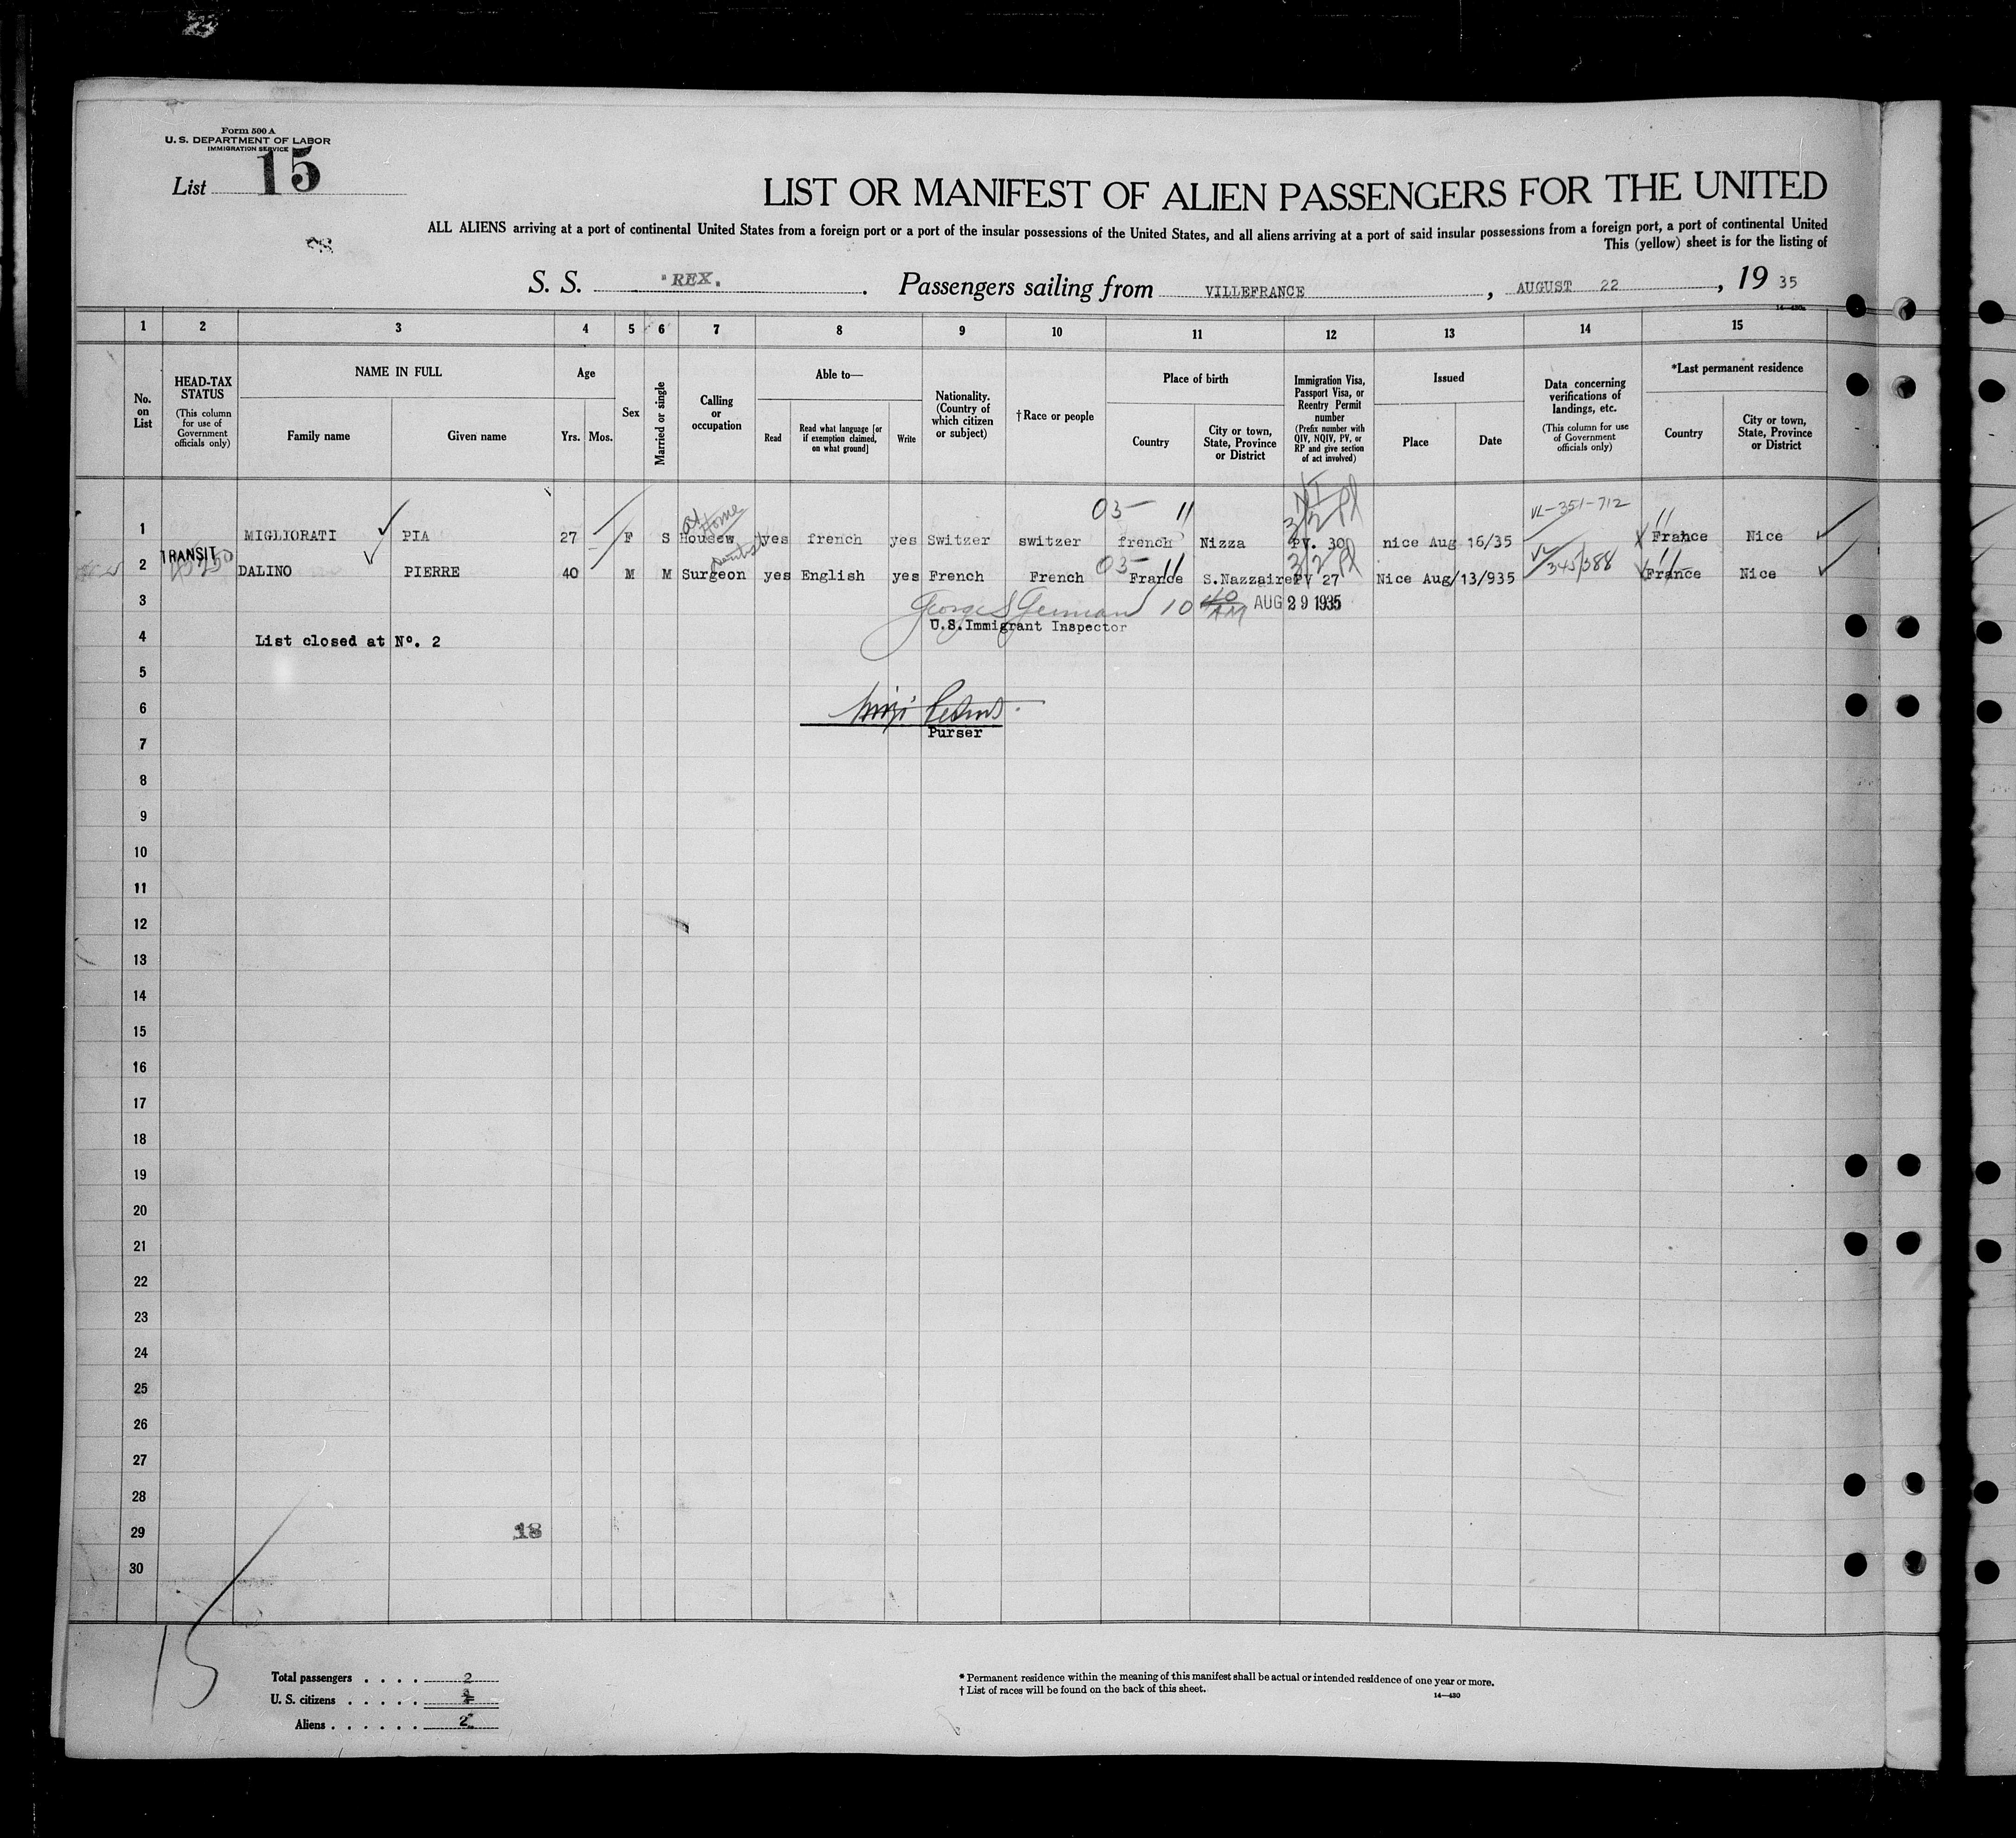 Form 500 A
U. S. DEPARTMENT OF LABOR
IMMIGRATION SERVICE
List 15
LIST OR MANIFEST OF ALIEN PASSENGERS FOR THE UNITED
ALL ALIENS arriving at a port of continental United States from a foreign port or a port of the insular possessions of the United States, and all aliens arriving at a port of said insular possessions from a foreign port, a port of continental United
This (yellow) sheet is for the listing of
S. S. "REX. Passengers sailing from VILLEFRANCE, AUGUST 22, 19 35
14—430a
1 2 3 4 5 6 7 8 9 10 11 12 13 14 15
No. on List
HEAD-TAX STATUS
(This column for use of Government officials only)
NAME IN FULL
Family name
Given name
Age
Yrs. Mos.
Sex
Married or single
Calling or occupation
Able to—
Read
Read what language [or if exemption claimed, on what ground]
Write
Nationality. (Country of which citizen or subject)
†Race or people
Place of birth
Country
City or town, State, Province or District
Immigration Visa, Passport Visa, or Reentry Permit number
(Prefix number with QIV, NQIV, PV, or RP and give section of act involved)
Issued
Place
Date
Data concerning verifications of landings, etc.
(This column for use of Government officials only)
*Last permanent residence
Country
City or town, State, Province or District
03- 11 3/2 VL-351-712
at Home
1 MIGLIORATI PIA 27 F S Housew yes french yes Switzer switzer french Nizza PV. 30 nice Aug 16/35 France Nice
TRANSIT Dentist 03- 11 3/2 VL 345/388
2 DALINO PIERRE 40 M M Surgeon yes English yes French French France S.Nazzaire PV 27 Nice Aug/13/935 France Nice
3 George S 10 40 AM AUG 29 1935
U.S.Immigrant Inspector
4 List closed at Nº. 2
5
6
Purser
7
8
9
10
11
12
13
14
15
16
17
18
19
20
21
22
23
24
25
26
27
28
29 18
30
15
Total passengers . . . . 2
U. S. citizens . . . . .
Aliens . . . . . . 2
* Permanent residence within the meaning of this manifest shall be actual or intended residence of one year or more.
† List of races will be found on the back of this sheet.
14—430